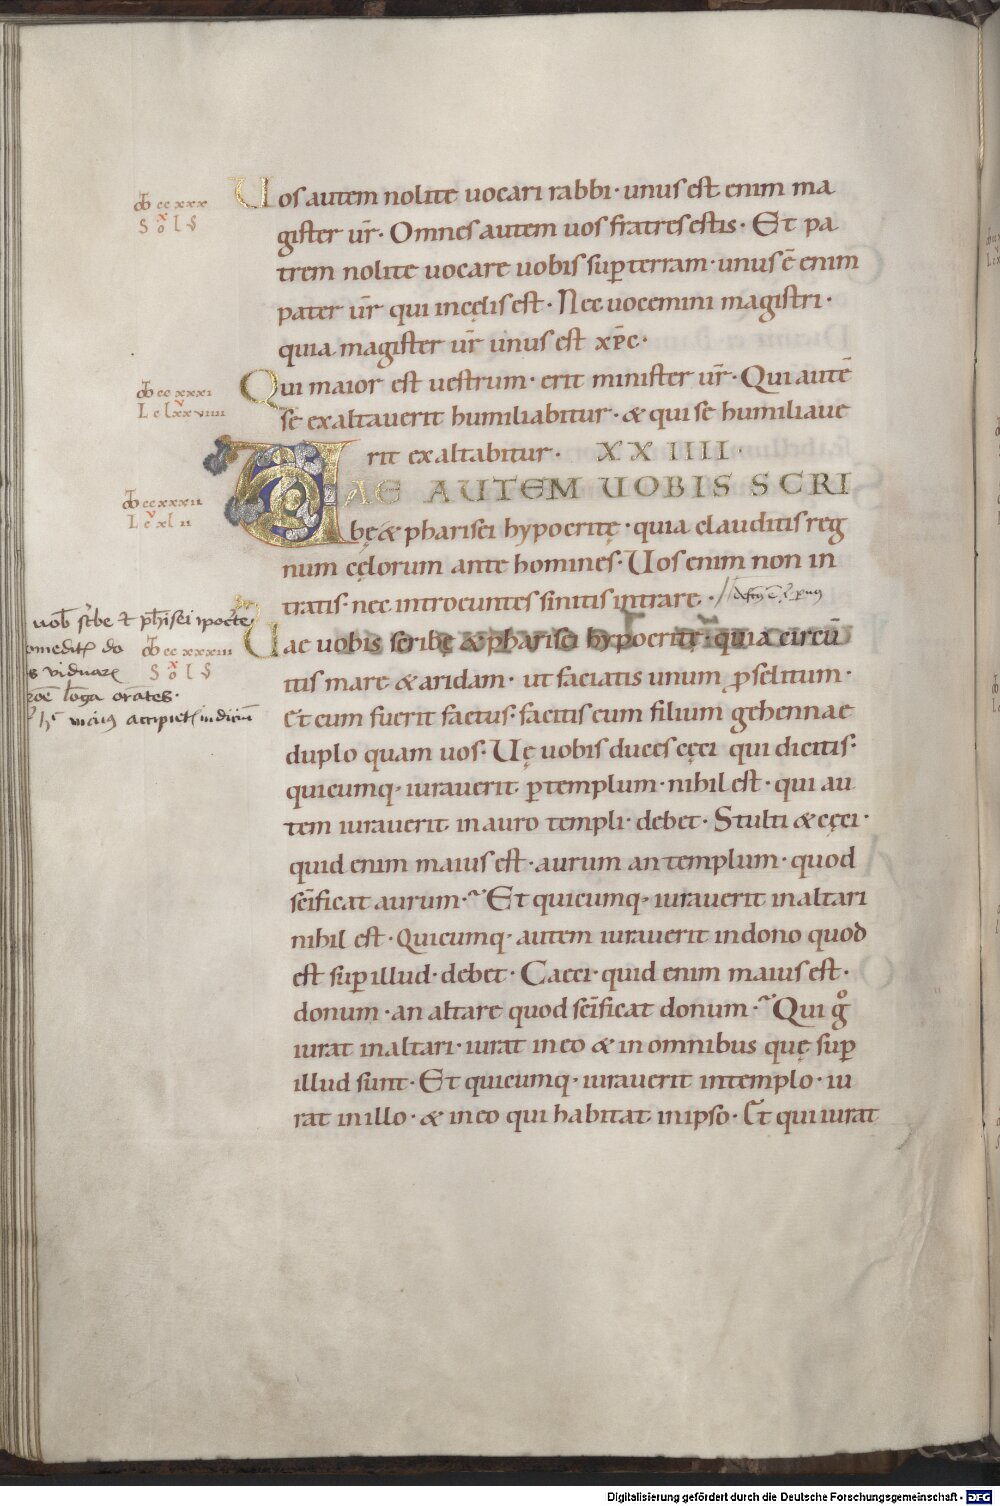 Uos autem nolite uocari rabbi· unus est enim ma
gister ur̄· Omnes autem uos fratres estis· Et pa
trem nolite uocare uobis sup̄ terram· unus ē enim
pater ur̄ qui in cęlis est· Nec uocemini magistri·
quia magister ur̄ unus est xp̄c·
Qui maior est uestrum· erit minister ur̄· Qui autē
se exaltauerit humiliabitur· & qui se humiliaue
rit exaltabitur· XXIIII·
UAE AUTEM UOBIS SCRI
bę & pharisei hypocritę· quia clauditis reg
num cęlorum ante homines· Uos enim non in
tratis· nec introeuntes sinitis intrare·
Uae uobis scribę & pharisei hypocritę· quia circū
itis mare & aridam· ut faciatis unum p̄selitum·
Et cum fuerit factus· facitis eum filium gehennae
duplo quam uos· Uę uobis duces cęci qui dicitis·
quicumq· iurauerit p̄ templum· nihil est· qui au
tem iurauerit in auro templi· debet· Stulti & cęci·
quid enim maius est· aurum an templum· quod
sc̄ificat aurum· Et quicumq· iurauerit in altari
nihil est· Quicumq· autem iurauerit in dono quod
est sup̄ illud· debet· Caeci· quid enim maius est·
donum· an altare quod sc̄ificat donum· Qui gͦ
iurat in altari· iurat in eo & in omnibus quę sup̄
illud sunt· Et quicumq· iurauerit in templo· iu
rat in illo· & in eo qui habitat in ipso· Et qui iurat
cc xxx
cc xxxi
L c lxxviiii
cc xxxii
L c xl ii
uob̄ sc̄be et ph̄isei ipoc̄te
cc xxxiii
Digitalisierung gefördert durch die Deutsche Forschungsgemeinschaft - DFG